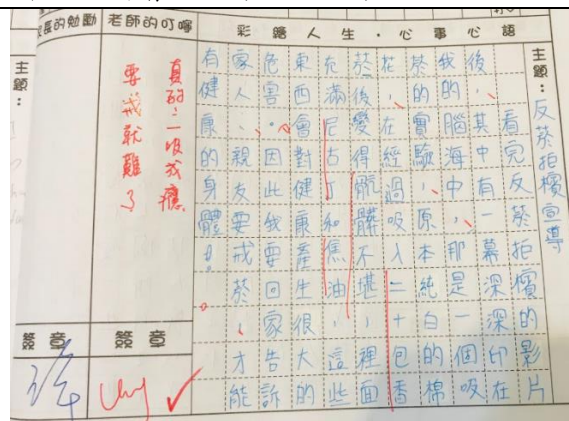 彩繪人生・心事心語
主題：反菸拒檳宣導
看完反菸拒檳的影片
後、其中有一幕深深印在
我的腦海中、那是一個吸
菸的實驗、原本純白的棉
花、在經過吸入二十包香
菸後變得骯髒不堪、裡面
充滿尼古丁和焦油、這些
東西會對健康產生很大的
危害、因此我要回家告訴
家人、親友要戒菸、才能
有健康的身體。
老師的叮嚀
真的！一吸成癮
要戒就難了
簽章
長的勉勵
簽章
主題：